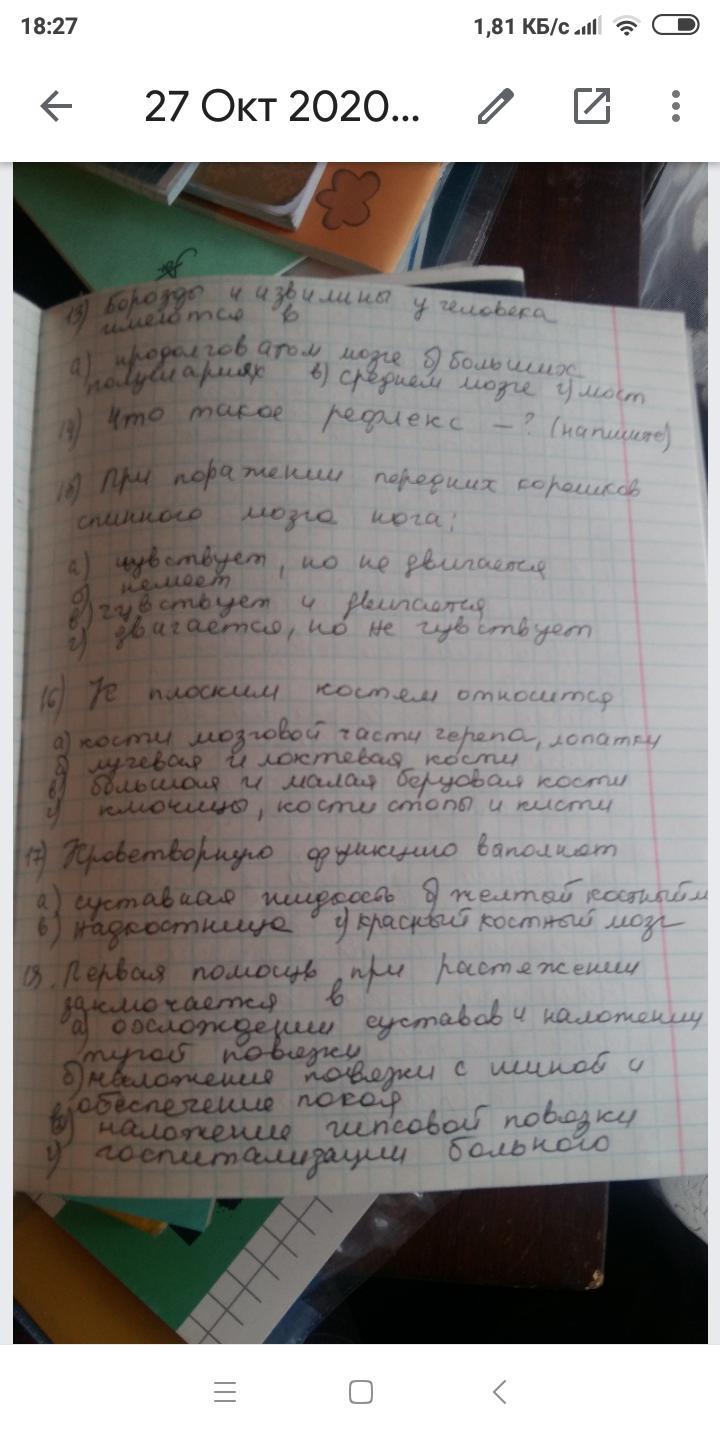 18:27
1,81 КБ/с
27 Окт 2020...
13) Борозды и извилины у человека
имеются в
а) продолговатом мозге б) больших
полушариях в) среднем мозге г) мост
14) Что такое рефлекс – ? (напишите)
15) При поражении передних корешков
спинного мозга нога:
а) чувствует, но не двигается
б) немеет
в) чувствует и двигается
г) двигается, но не чувствует
16) К плоским костям относится
а) кости мозговой части черепа, лопатку
б) лучевая и локтевая кости
в) большая и малая берцовая кости
г) ключицы, кости стопы и кисти
17) Кроветворную функцию выполнят
а) суставная жидкость б) желтый костный м
в) надкостница г) красный костный мозг
18. Первая помощь при растяжении
заключается в
а) охлождении суставов и наложении
тугой повязки
б) наложения повязки с шиной и
обеспечение покоя
в) наложение гипсовой повязки
г) госпитализации больного